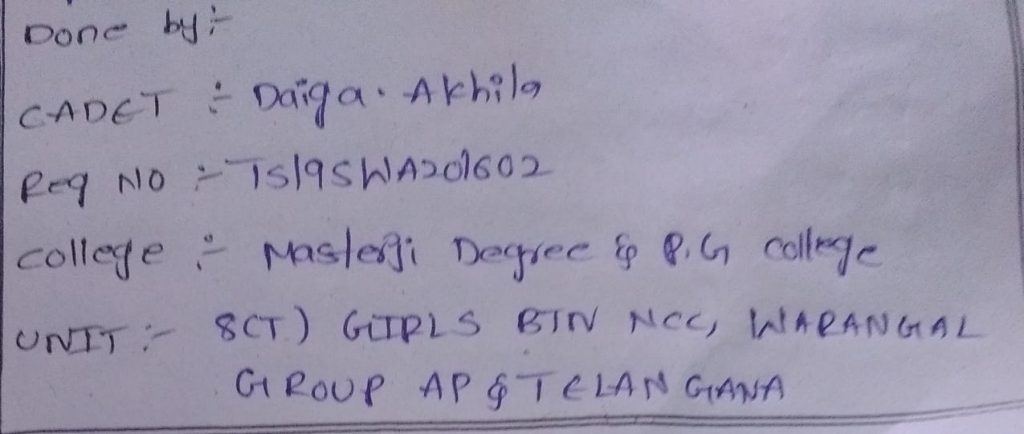 Done by:-
CADET :- Daiga. Akhila
Reg NO :- TS19SWA201602
college :- Masterji Degree & P.G college
UNIT :- 8(T) GIRLS BTN NCC, WARANGAL
GROUP AP & TELANGANA